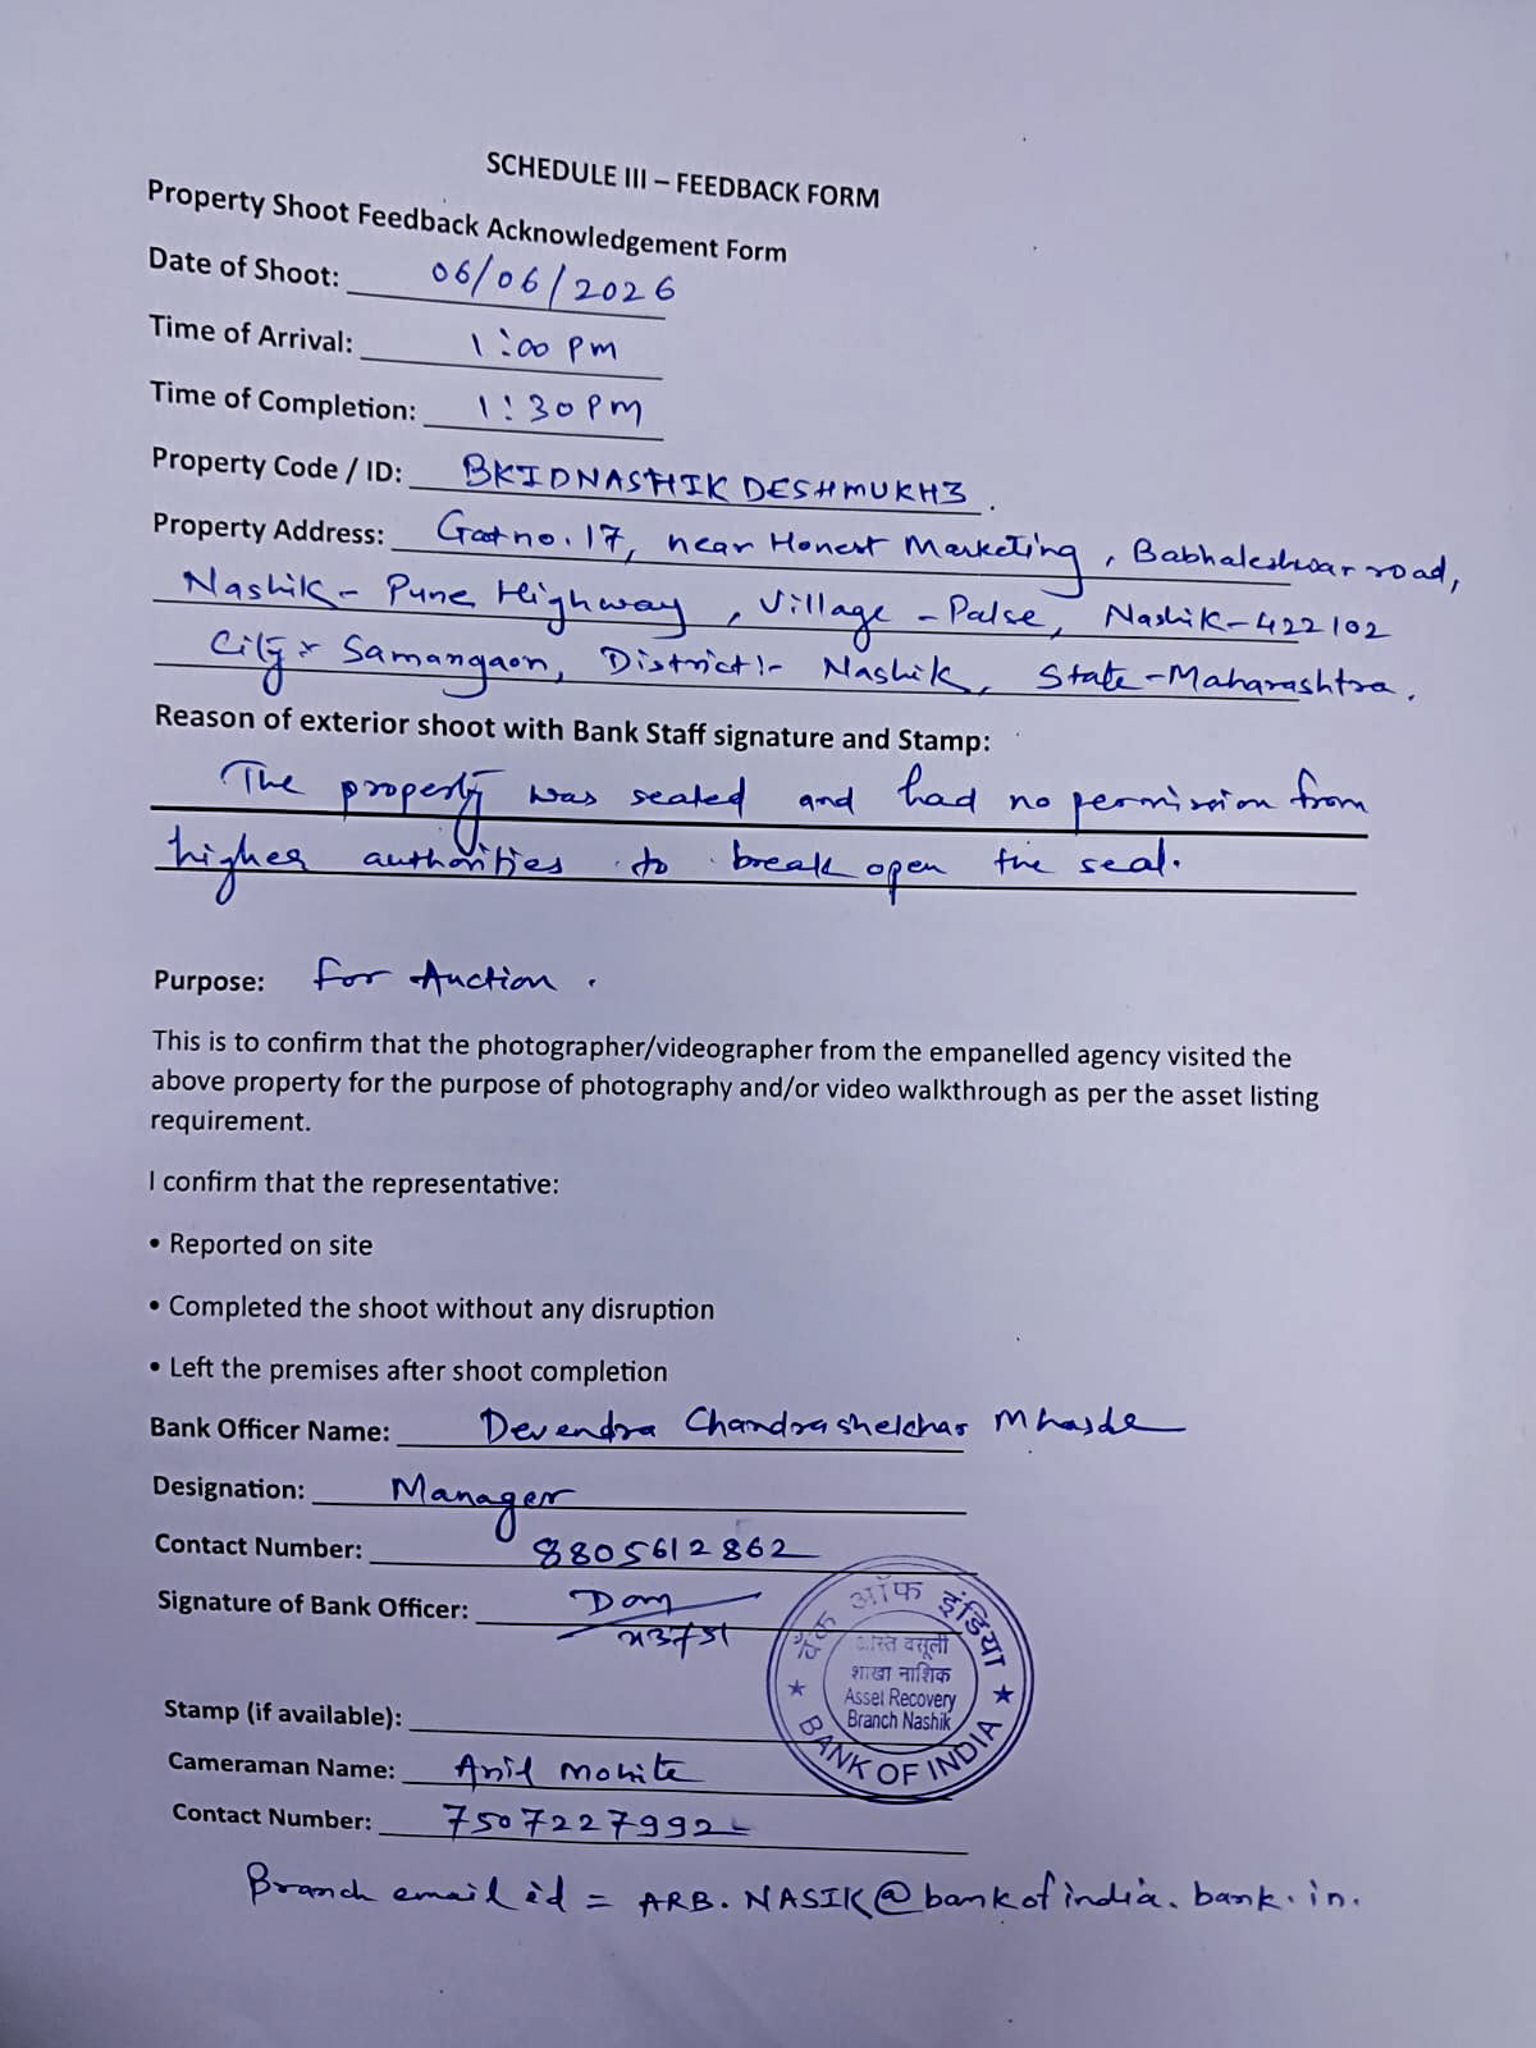 SCHEDULE III – FEEDBACK FORM
Property Shoot Feedback Acknowledgement Form
Date of Shoot: 06/06/2026
Time of Arrival: 1:00 PM
Time of Completion: 1:30 PM
Property Code / ID: BKIDNASHIKDESHMUKH3.
Property Address: Gat no. 17, near Honest Marketing, Babhaleshwar road,
Nashik - Pune Highway, Village - Palse, Nashik - 422102
City :- Samangaon, District :- Nashik, State - Maharashtra.
Reason of exterior shoot with Bank Staff signature and Stamp:
The property was sealed and had no permission from
higher authorities to break open the seal.
Purpose: For Auction.
This is to confirm that the photographer/videographer from the empanelled agency visited the
above property for the purpose of photography and/or video walkthrough as per the asset listing
requirement.
I confirm that the representative:
• Reported on site
• Completed the shoot without any disruption
• Left the premises after shoot completion
Bank Officer Name: Devendra Chandrashekhar Mhasde
Designation: Manager
Contact Number: 8805612862
Signature of Bank Officer:
बैंक ऑफ इंडिया
आस्ति वसूली
शाखा नाशिक
Asset Recovery
Branch Nashik
BANK OF INDIA
Stamp (if available):
Cameraman Name: Anil Mohite
Contact Number: 7507227992
Branch email id = ARB.NASIK@bankofindia.bank.in.